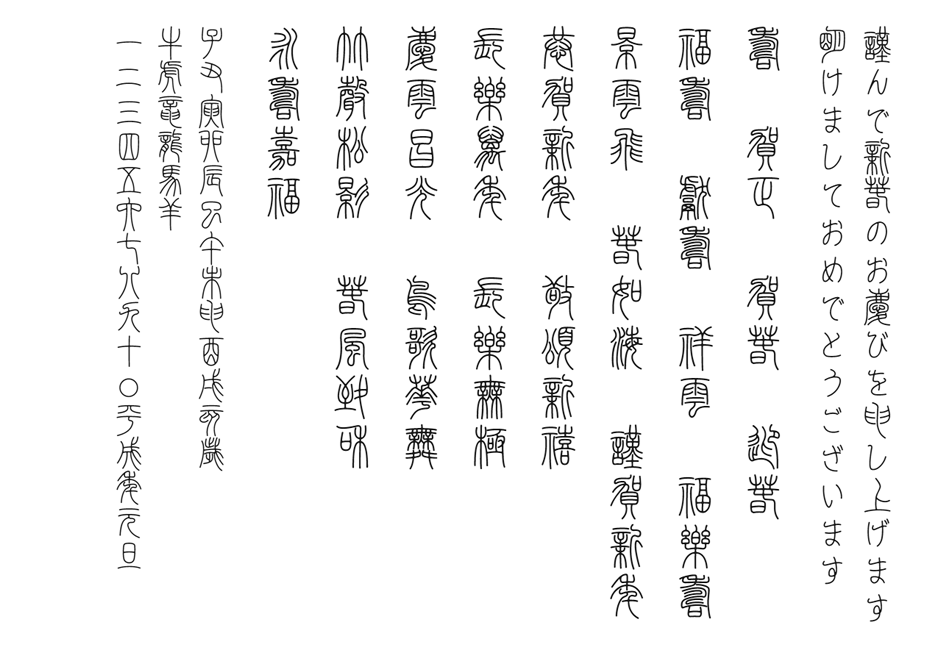 謹んで新春のお慶びを申し上げます
明けましておめでとうございます
壽　賀正　賀春　迎春
福壽　献壽　祥雲　福樂壽
景雲飛　春如海　謹賀新年
恭賀新年　敬頌新禧
長樂萬年　長樂無極
慶雲昌光　鳥歌華舞
竹聲松影　春風致和
永壽嘉福
子丑寅卯辰巳午未申酉戌亥歳
牛虎竜龍馬羊
一二三四五六七八九十〇平成年元旦